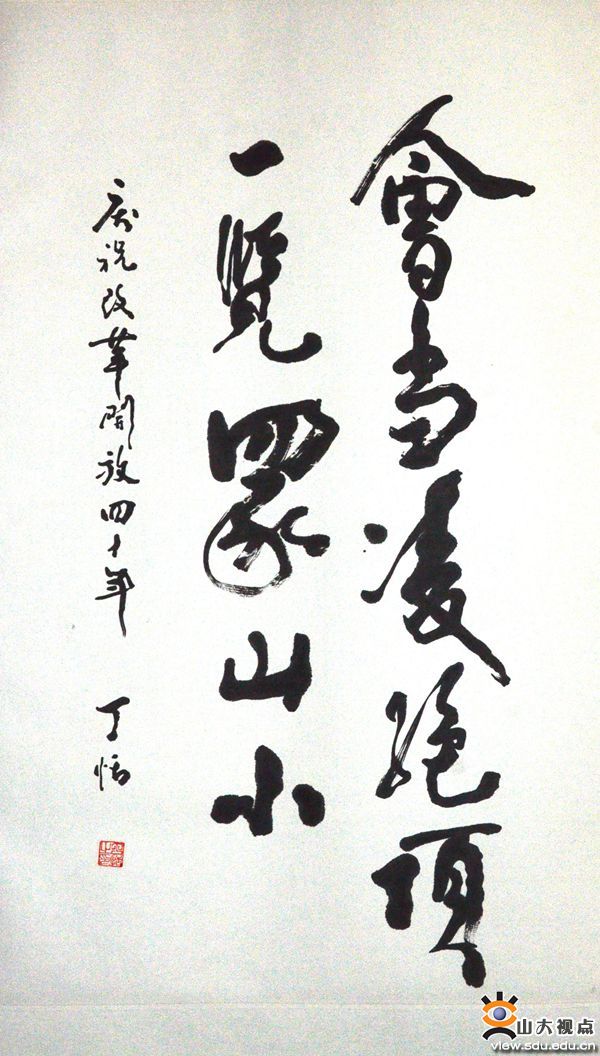 會当凌絶頂
一覽眾山小
庆祝改革開放四十年
丁
山大视点
view.sdu.edu.cn